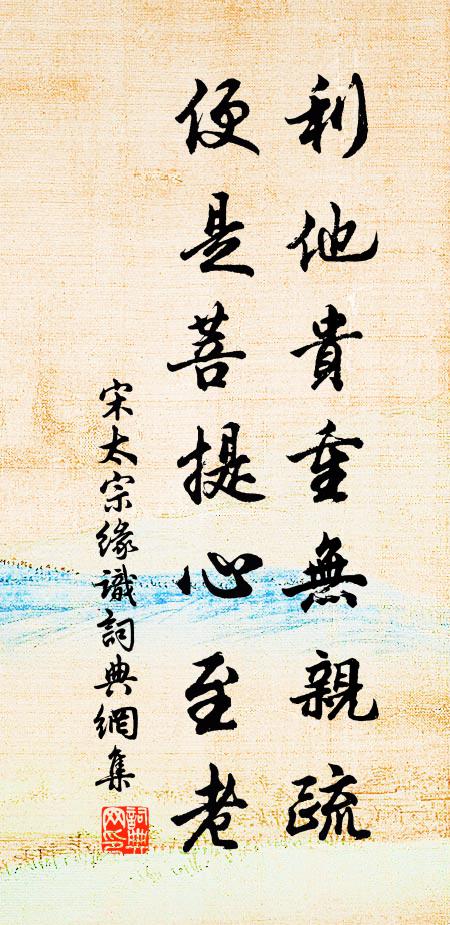 利他貴重無親疏
便是菩提心至老
宋太宗緣識詞典網集
詞典网印